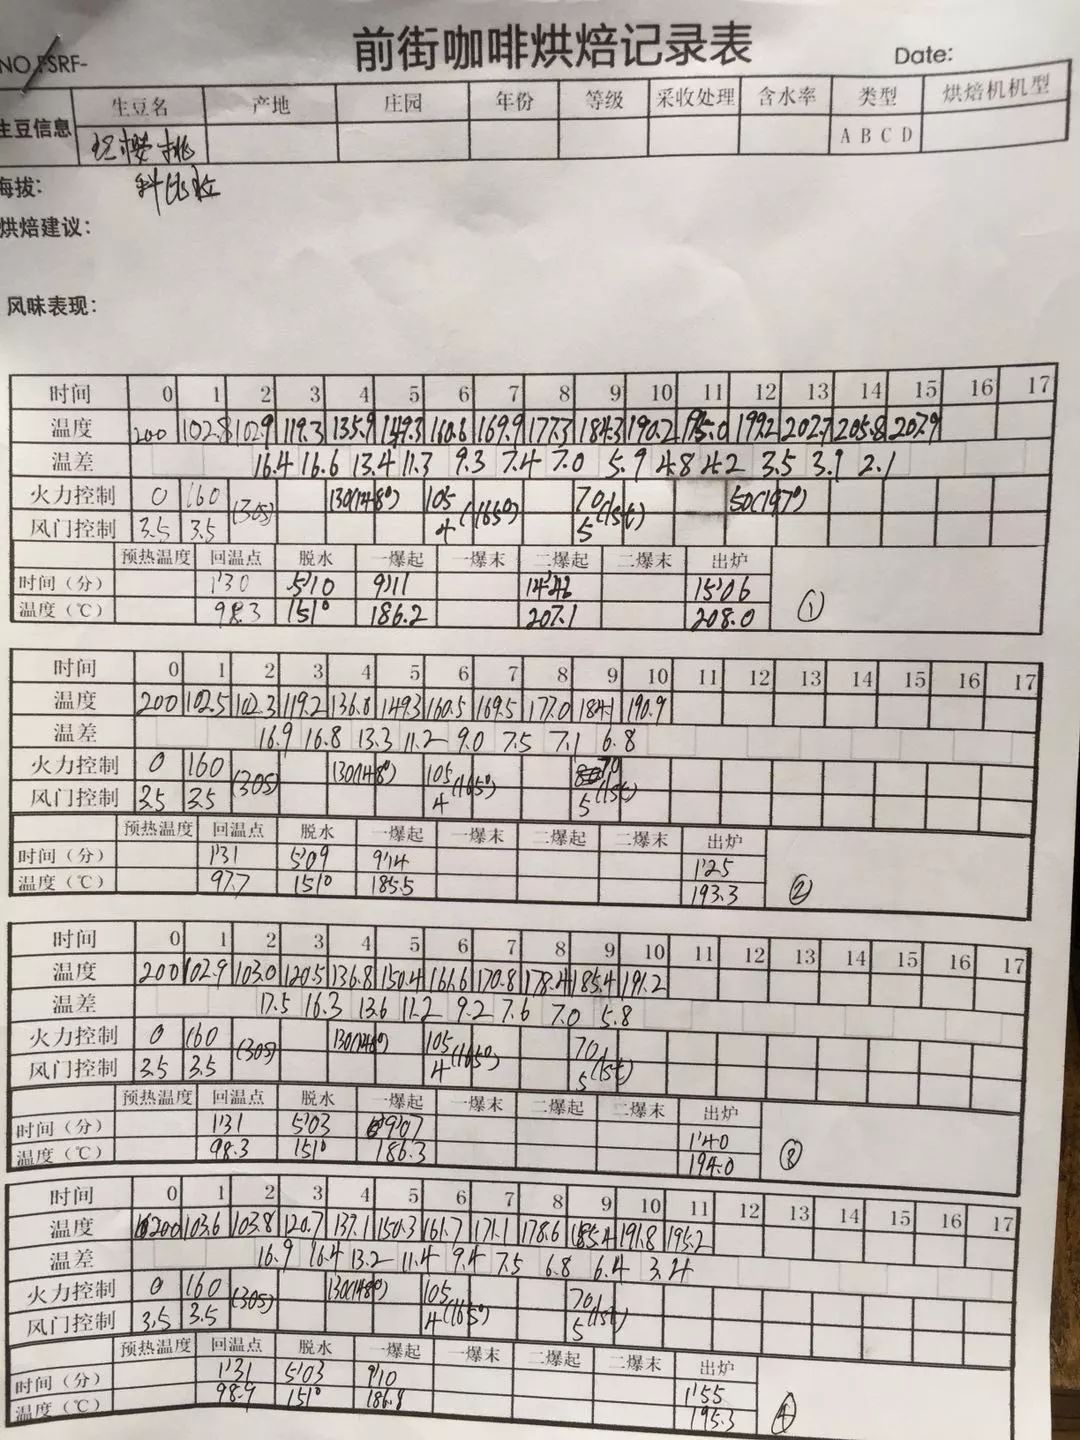 前街咖啡烘焙记录表
NO FSRF- Date:
生豆信息 生豆名 产地 庄园 年份 等级 采收处理 含水率 类型 烘焙机机型
红樱桃 A B C D
海拔:
科比拉
烘焙建议:
风味表现:
时间 0 1 2 3 4 5 6 7 8 9 10 11 12 13 14 15 16 17
温度 200 102.8 102.9 119.3 135.9 149.3 160.6 169.9 177.3 184.3 190.2 195.0 199.2 202.7 205.8 207.9
温差 16.4 16.6 13.4 11.3 9.3 7.4 7.0 5.9 4.8 4.2 3.5 3.1 2.1
火力控制 0 160 (30s) 130(148°) 105 (165°) 70 (1st) 50(197°)
风门控制 3.5 3.5 4 5
预热温度 回温点 脱水 一爆起 一爆末 二爆起 二爆末 出炉
时间(分) 1'30 5'10 9'11 14'46 15'06
温度(℃) 98.3 151° 186.2 207.1 208.0 ①
时间 0 1 2 3 4 5 6 7 8 9 10 11 12 13 14 15 16 17
温度 200 102.5 102.3 119.2 136.0 149.3 160.5 169.5 177.0 184.1 190.9
温差 16.9 16.8 13.3 11.2 9.0 7.5 7.1 6.8
火力控制 0 160 (30s) 130(148°) 105 (165°) 70 (1st)
风门控制 3.5 3.5 4 5
预热温度 回温点 脱水 一爆起 一爆末 二爆起 二爆末 出炉
时间(分) 1'31 5'09 9'14 1'25
温度(℃) 97.7 151° 185.5 193.3 ②
时间 0 1 2 3 4 5 6 7 8 9 10 11 12 13 14 15 16 17
温度 200 102.9 103.0 120.5 136.8 150.4 161.6 170.8 178.4 185.4 191.2
温差 17.5 16.3 13.6 11.2 9.2 7.6 7.0 5.8
火力控制 0 160 (30s) 130(148°) 105 (165°) 70 (1st)
风门控制 3.5 3.5 4 5
预热温度 回温点 脱水 一爆起 一爆末 二爆起 二爆末 出炉
时间(分) 1'31 5'03 9'07 1'40
温度(℃) 98.3 151° 186.3 194.0 ③
时间 0 1 2 3 4 5 6 7 8 9 10 11 12 13 14 15 16 17
温度 200 103.6 103.8 120.7 137.1 150.3 161.7 171.1 178.6 185.4 191.8 195.2
温差 16.9 16.4 13.2 11.4 9.4 7.5 6.8 6.4 3.4
火力控制 0 160 (30s) 130(148°) 105 (165°) 70 (1st)
风门控制 3.5 3.5 4 5
预热温度 回温点 脱水 一爆起 一爆末 二爆起 二爆末 出炉
时间(分) 1'31 5'03 9'10 1'55
温度(℃) 98.9 151° 186.8 195.3 ④